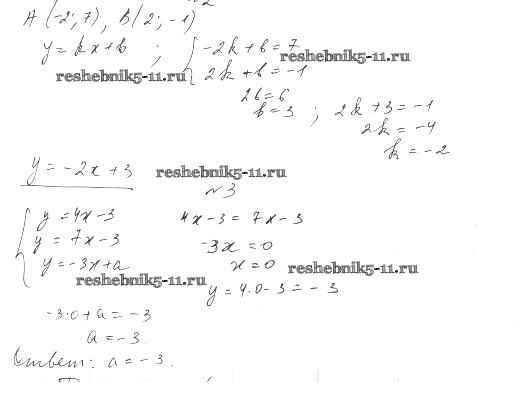 A (-2; 7), B (2; -1)
y = kx + b ; { -2k + b = 7
reshebnik5-11.ru
reshebnik5-11.ru
2k + b = -1
2b = 6
b = 3 ; 2k + 3 = -1
2k = -4
k = -2
y = -2x + 3
reshebnik5-11.ru
№3
{ y = 4x - 3
4x - 3 = 7x - 3
y = 7x - 3
-3x = 0
y = -3x + a
x = 0
reshebnik5-11.ru
reshebnik5-11.ru
y = 4·0 - 3 = -3
-3·0 + a = -3
a = -3.
Ответ: a = -3.